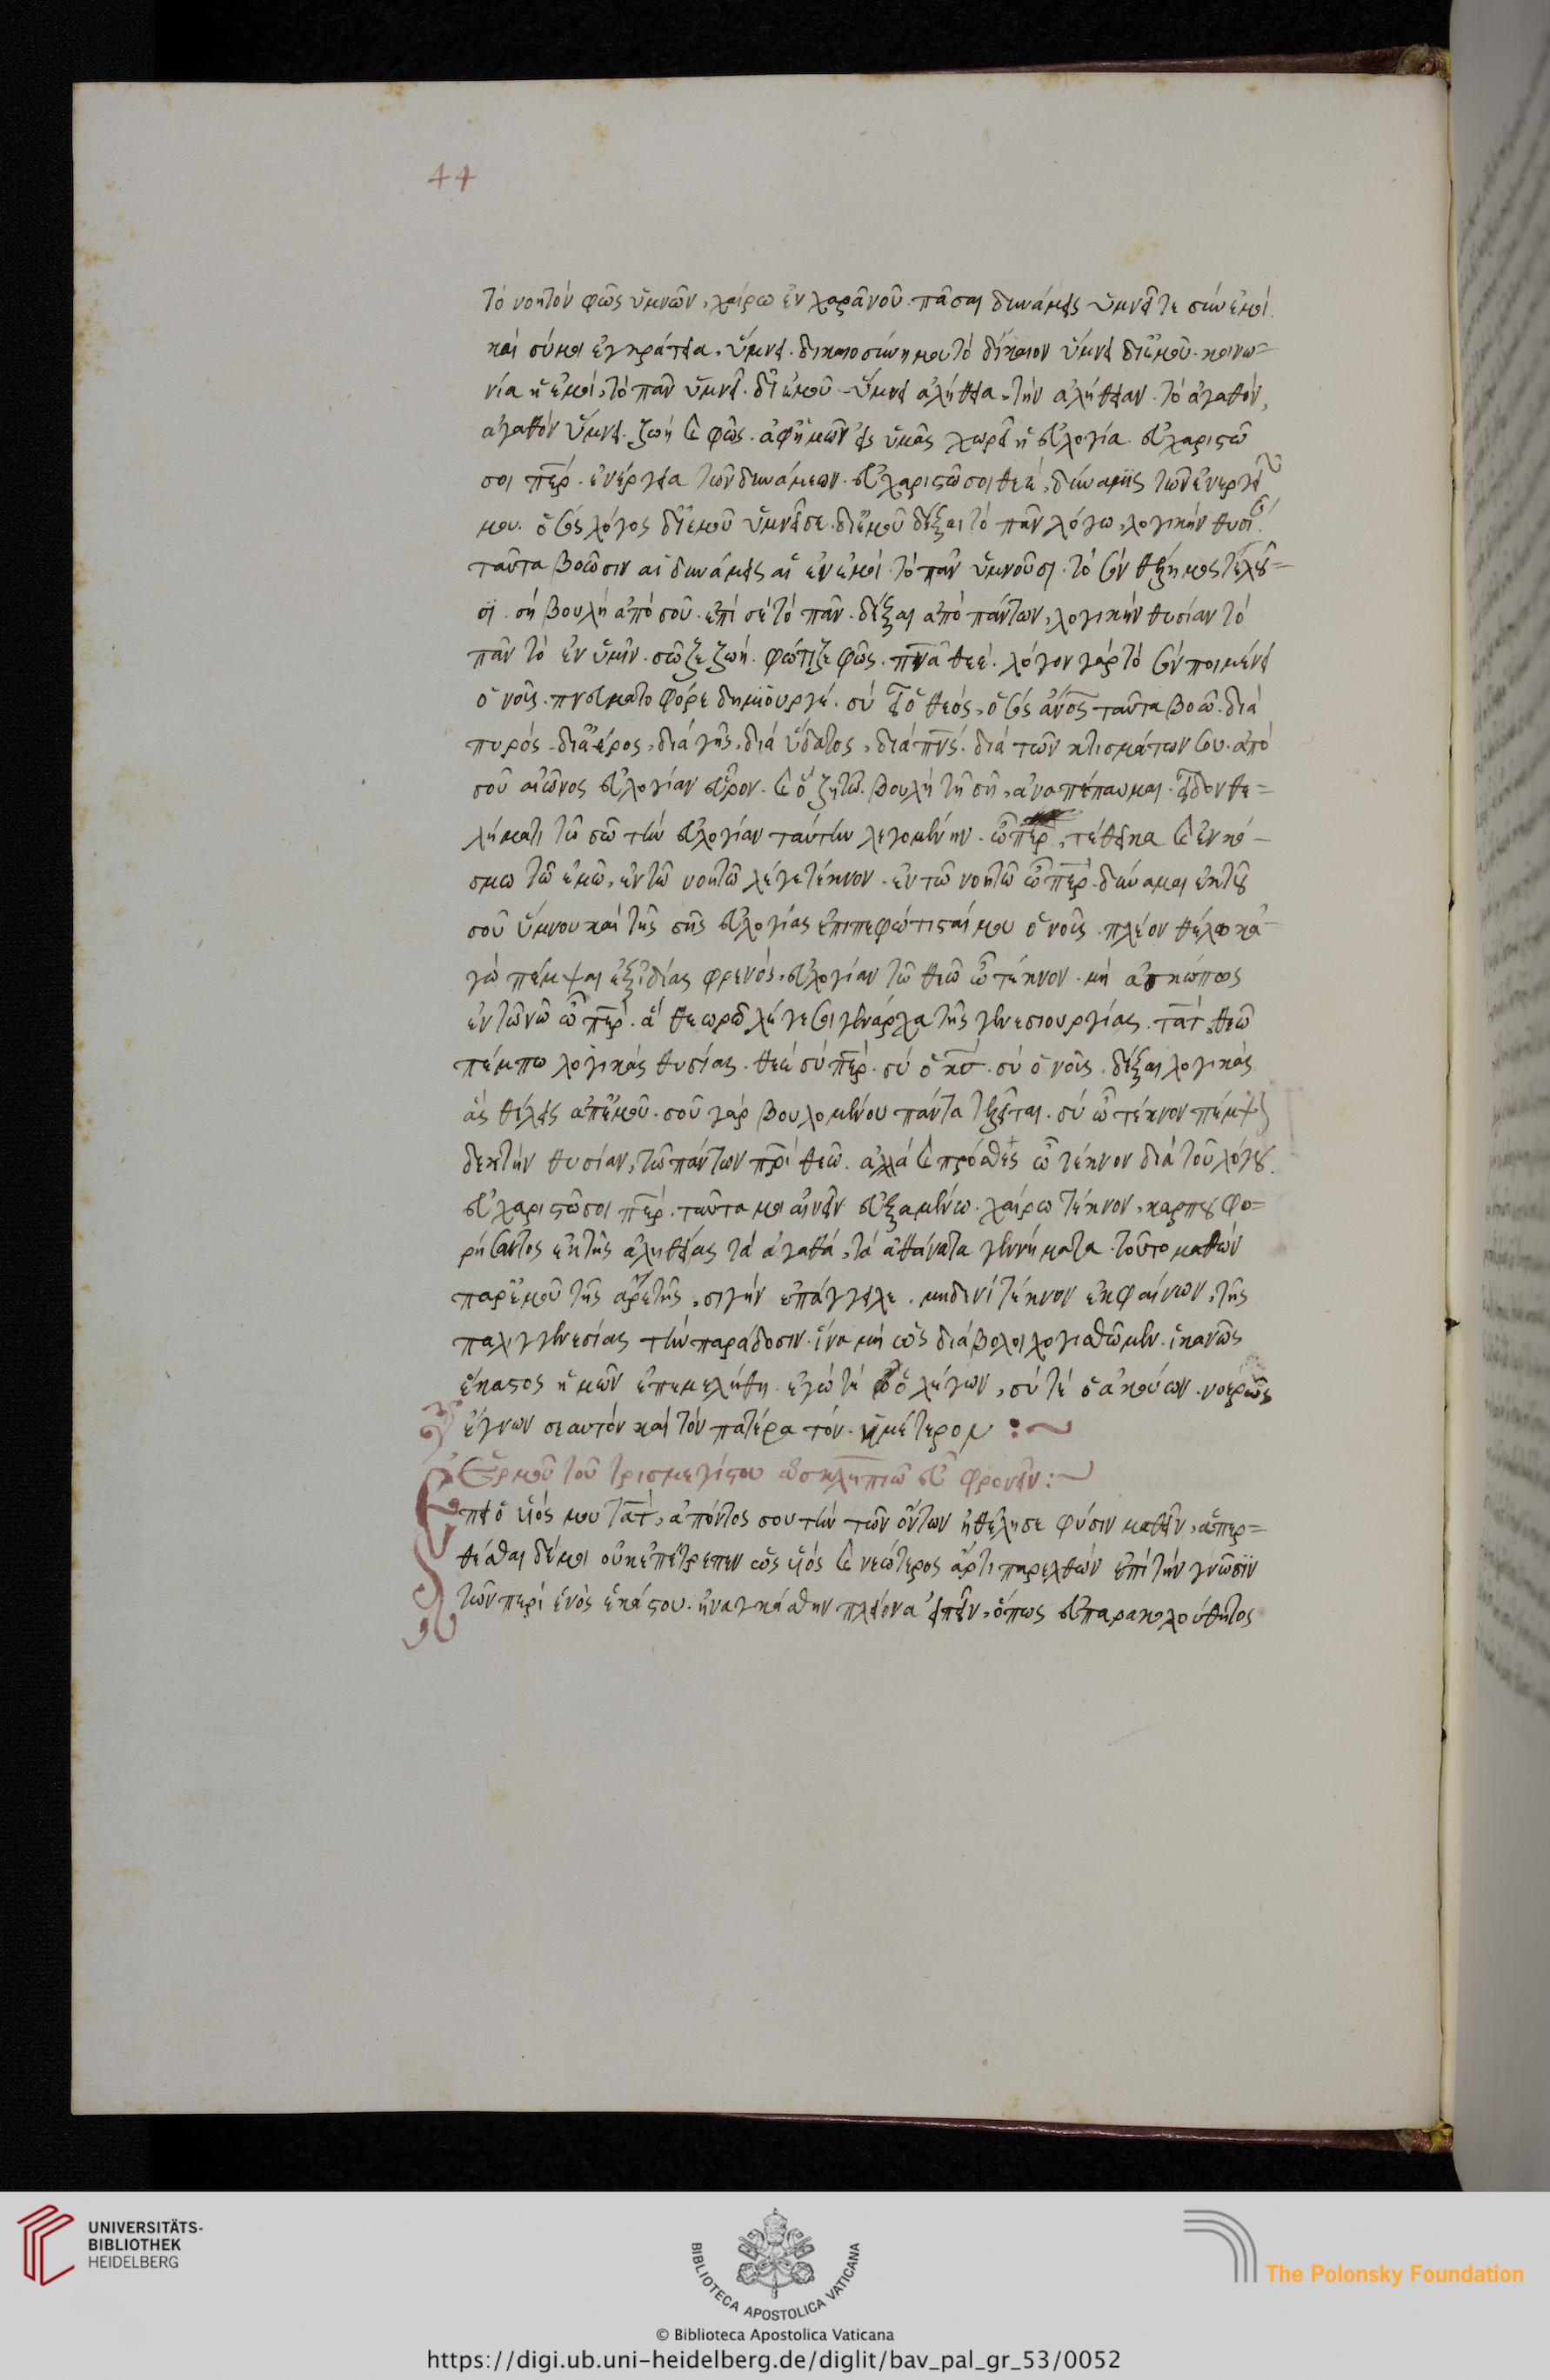 44
τὸ νοητὸν φῶς ὑμνῶν, χαίρω ἐν χαρᾶ νοῦ. πᾶσαι δυνάμεις ὑμνεῖτε σὺν ἐμοί.
καὶ σύ μοι ἐγκράτεια, ὕμνει. δικαιοσύνη μου τὸ δίκαιον ὕμνει δι ἐμοῦ. κοινω=
νία ἡ ἐμοί, τὸ πᾶν ὕμνει. δι ἐμοῦ ὕμνει ἀλήθεια, τὴν ἀλήθειαν. τὸ ἀγαθόν,
ἀγαθὸν ὕμνει. ζωὴ καὶ φῶς. ἀφ ἡμῶν εἰς ὑμᾶς χωρεῖ ἡ εὐλογία. εὐχαριστῶ
σοι περ. ἐνέργεια τῶν δυνάμεων. εὐχαριστῶ σοι θεέ, δύναμις τῶν ἐνεργειῶν
μου. ὁ σὸς λόγος δι ἐμοῦ ὑμνεῖ σε. δι ἐμοῦ δέξαι τὸ πᾶν λόγω, λογικὴν θυσί
ταῦτα βοῶσιν αἱ δυνάμεις αἱ ἐν ἐμοί. τὸ πᾶν ὑμνοῦσι. τὸ σὸν θέλημα τελοῦ=
σι. σὴ βουλὴ ἀπὸ σοῦ. ἐπὶ σὲ τὸ πᾶν. δέξαι ἀπὸ πάντων, λογικὴν θυσίαν τὸ
πᾶν τὸ ἐν ὑμῖν. σῶζε ζωή. φώτιζε φῶς. πνα θεέ. λόγον γὰρ τὸ σὸν ποιμένει
ὁ νοῦς. πνευματοφόρε δημιουργέ. σὺ εἶ ὁ θεός, ὁ σὸς ἄνος ταῦτα βοῶ. διὰ
πυρός, δι ἀέρος, διὰ γῆς, διὰ ὕδατος, διὰ πνς. διὰ τῶν κτισμάτων σου. ἀπὸ
σοῦ αἰῶνος εὐλογίαν εὗρον. καὶ ὃ ζητῶ. βουλῆ τῆ σῆ, ἀναπέπαυμαι. εἶδον θε=
λήματι τῶ σῶ τὴν εὐλογίαν ταύτην λεγομένην. ὦ περ, τέθεικα καὶ ἐν κό-
σμω τῶ ἐμῶ, ἐν τῶ νοητῶ λέγε τέκνον. ἐν τῶ νοητῶ ὦ περ. δύναμαι ἐκ τοῦ
σοῦ ὕμνου καὶ τῆς σῆς εὐλογίας ἐπιπεφώτισταί μου ὁ νοῦς. πλέον θέλω κἀ=
γὼ πέμψαι ἐξ ἰδίας φρενός, εὐλογίαν τῶ θεῶ ὦ τέκνον. μὴ ἀσκόπως
ἐν τῶ νῶ ὦ περ. ἃ θεωρῶ λέγε σοι γενάρχα τῆς γενεσιουργίας. τατ, θεῶ
πέμπω λογικὰς θυσίας. θεὲ σὺ περ. σὺ ὁ κσ. σὺ ὁ νοῦς. δέξαι λογικὰς
ἃς θέλεις ἀπ ἐμοῦ. σοῦ γὰρ βουλομένου πάντα τελεῖται. σὺ ὦ τέκνον πέμψ
δεκτὴν θυσίαν, τῶ πάντων πρὶ θεῶ. ἀλλὰ καὶ πρόσθες ὦ τέκνον διὰ τοῦ λόγου.
εὐχαριστῶ σοι περ. ταῦτα μοι αἰνεῖν εὐξαμένω. χαίρω τέκνον, καρποῦ φο=
ρήσαντος ἐκ τῆς ἀληθείας τὰ ἀγαθά, τὰ ἀθάνατα γεννήματα. τοῦτο μαθὼν
παρ ἐμοῦ τῆς ἀρετῆς, σιγὴν ἐπάγγειλε. μηδενὶ τέκνον ἐκφαίνων, τῆς
παλιγγενεσίας τὴν παράδοσιν. ἵνα μὴ ὡς διάβολοι λογισθῶμεν. ἱκανῶς
ἕκαστος ἡμῶν ἐπεμελήθη. ἐγώ τε ὁ λέγων, σύ τε ὁ ἀκούων. νοερῶς
ἔγνων σεαυτὸν καὶ τὸν πατέρα τὸν ἡμέτερον :~
Ἑρμοῦ τοῦ τρισμεγίστου ἀσκληπιῶ εὖ φρονεῖν :~
Ἐπεὶ ὁ υἱός μου τατ, ἀπόντος σου τὴν τῶν ὄντων ἠθέλησε φύσιν μαθεῖν, ὑπερ=
θέσθαι δέ μοι οὐκ ἐπέτρεπεν ὡς υἱὸς καὶ νεώτερος ἄρτι παρελθὼν ἐπὶ τὴν γνῶσιν
τῶν περὶ ἑνὸς ἑκάστου. ἠναγκάσθην πλείονα εἰπεῖν, ὅπως εὐπαρακολούθητος
UNIVERSITÄTS-
BIBLIOTHEK
HEIDELBERG
BIBLIOTECA APOSTOLICA VATICANA
The Polonsky Foundation
© Biblioteca Apostolica Vaticana
https://digi.ub.uni-heidelberg.de/diglit/bav_pal_gr_53/0052